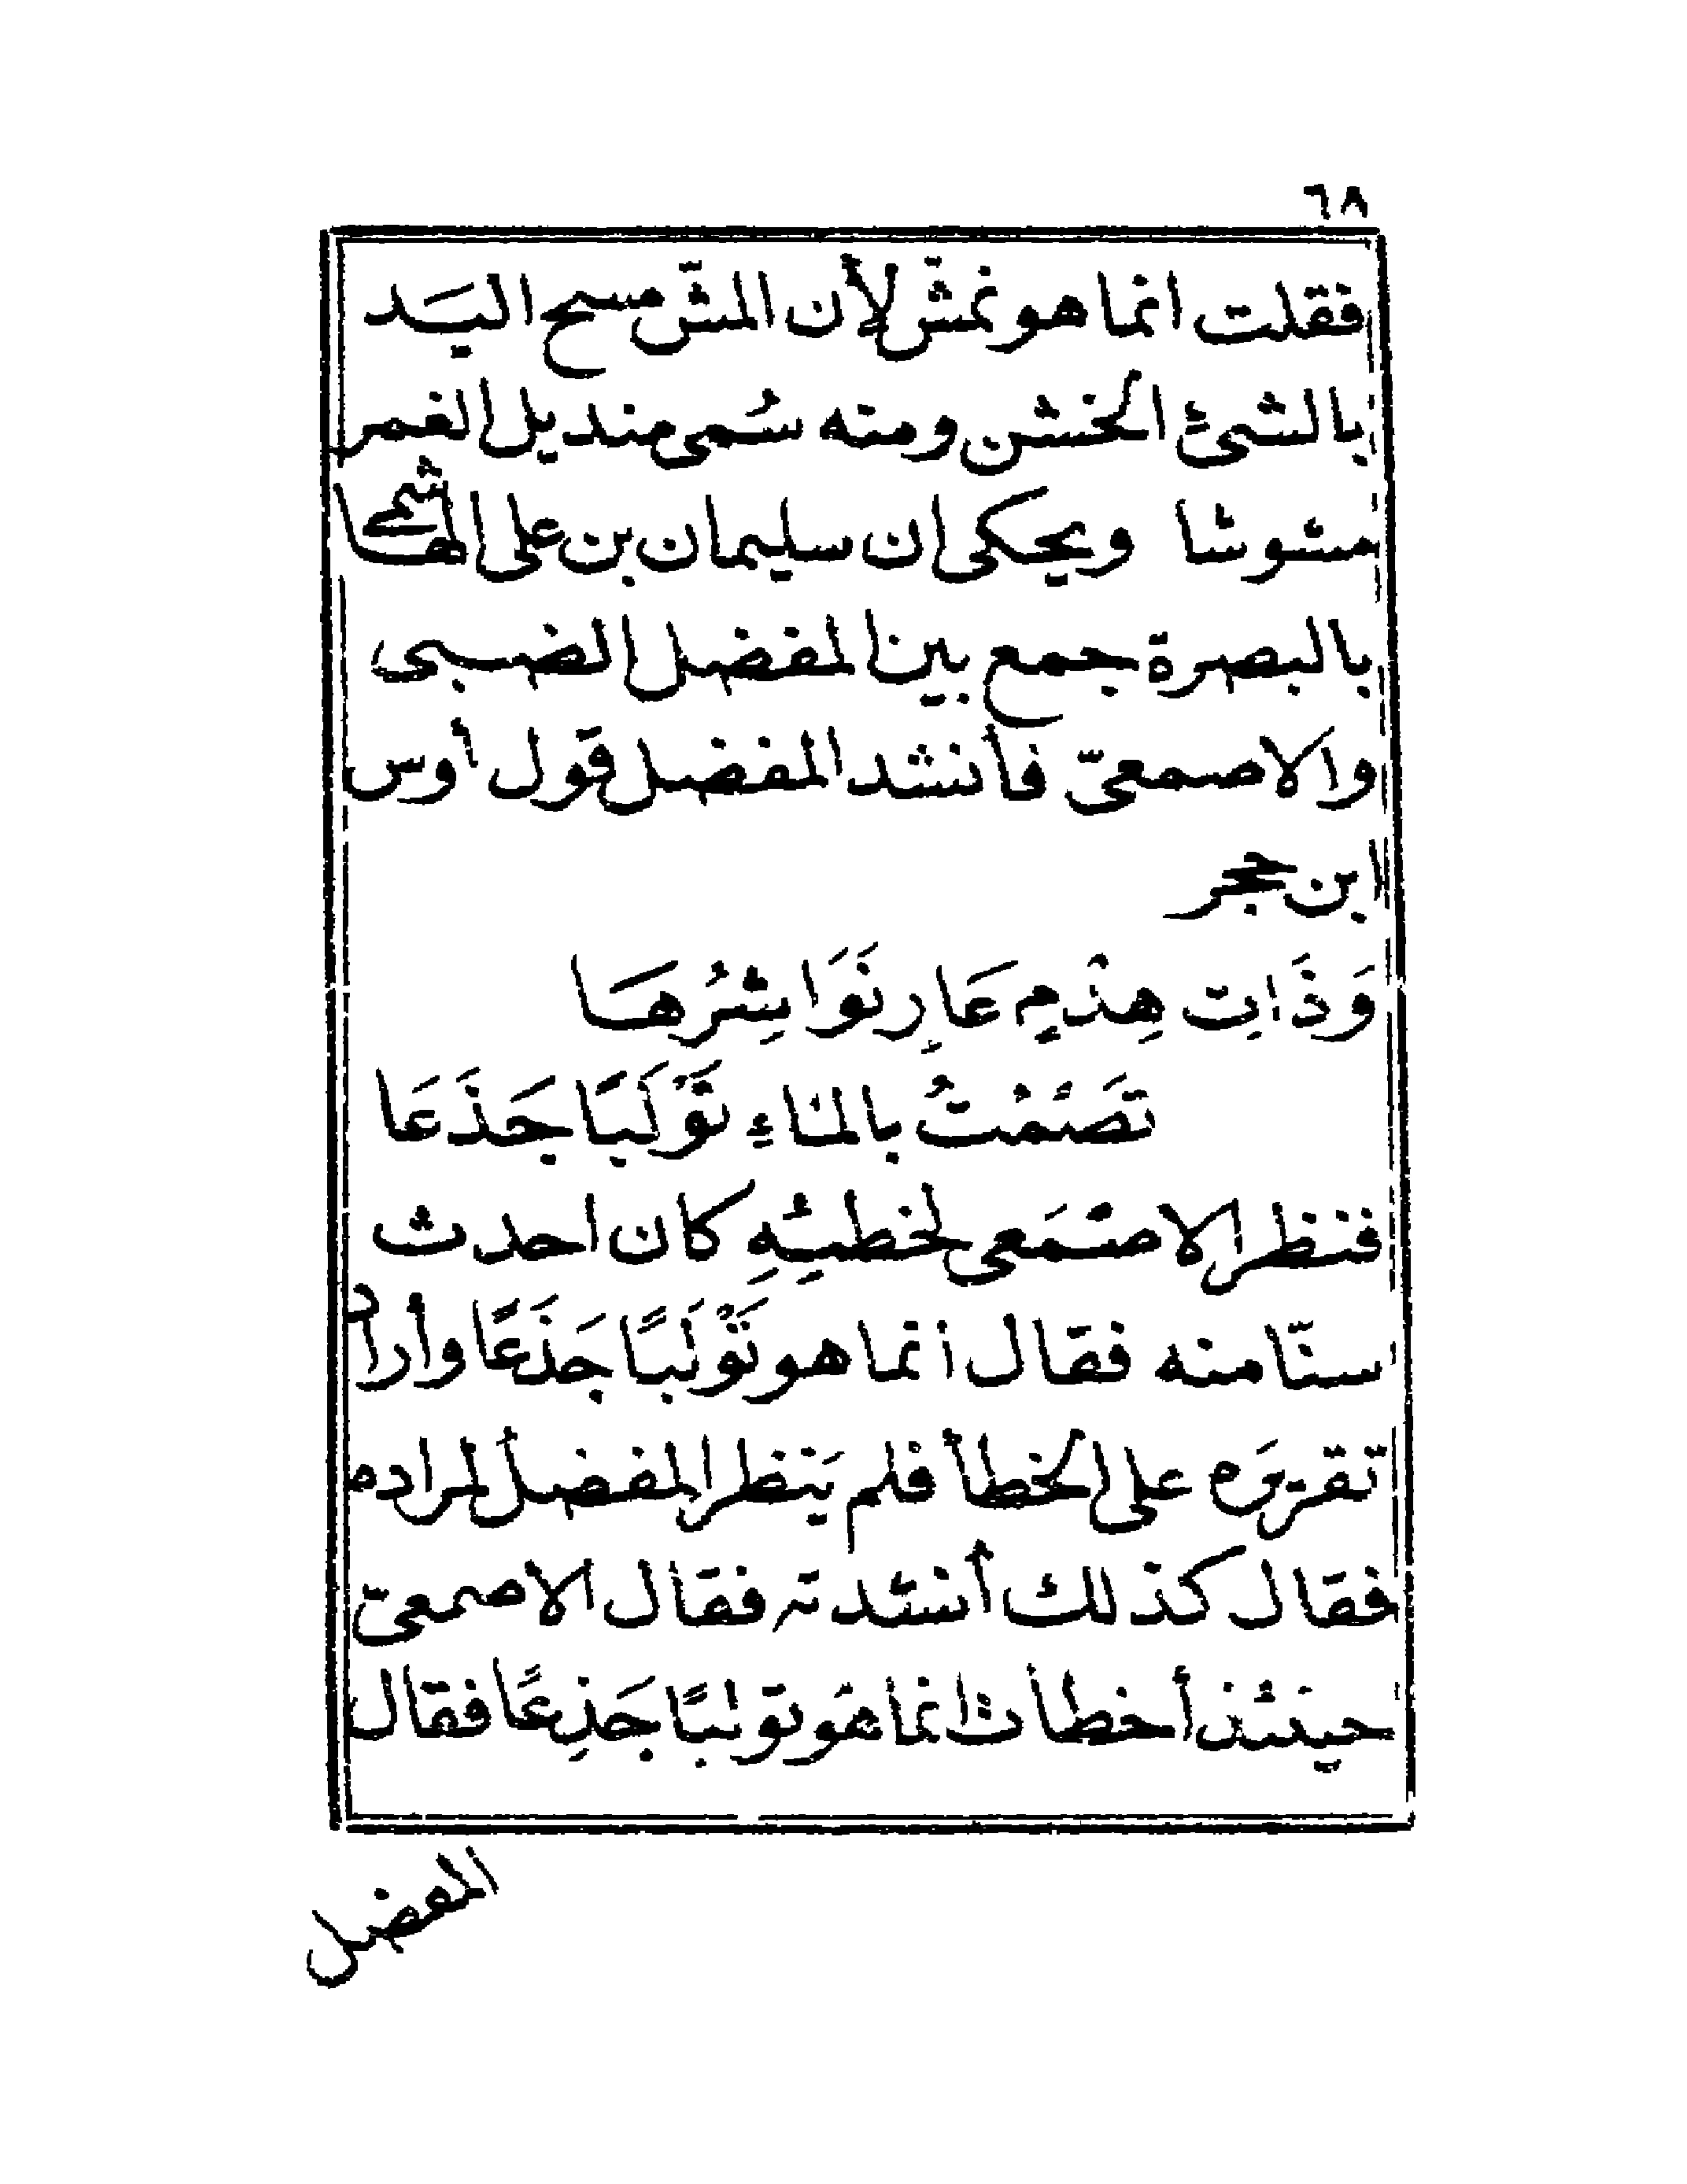 ٦٨
فقلت انما هو نمشّ لأن المشّ مسح اليَد
بالشئ الخشن ومنه سُمى منديل الغمر
مشوشا ويحكى ان سليمان بن على الهاشمى
بالبصرة جمع بين المفضل الضبى
والاصمعىّ فأنشد المفضل قول أوس
ابن حجر
وَذَاتِ هِدْمٍ عَارٍ نَوَاشِرُهَا
تَصْمُتُ بالمَاءِ تَوْلَبًا جَذَعَا
فنظر الاصْمَعى لخطئِهِ كان احدث
سنّا منه فقال انما هو تَوْلَبًا جَذَعًا وأراد
تقريرَه على الخطأ فلم يَنظر المفضل لمراده
فقال كذلك أنشدته فقال الاصمعىّ
حينئذ أخطأت انما هَو تولبًا جَذِعًا فقال
المفضل